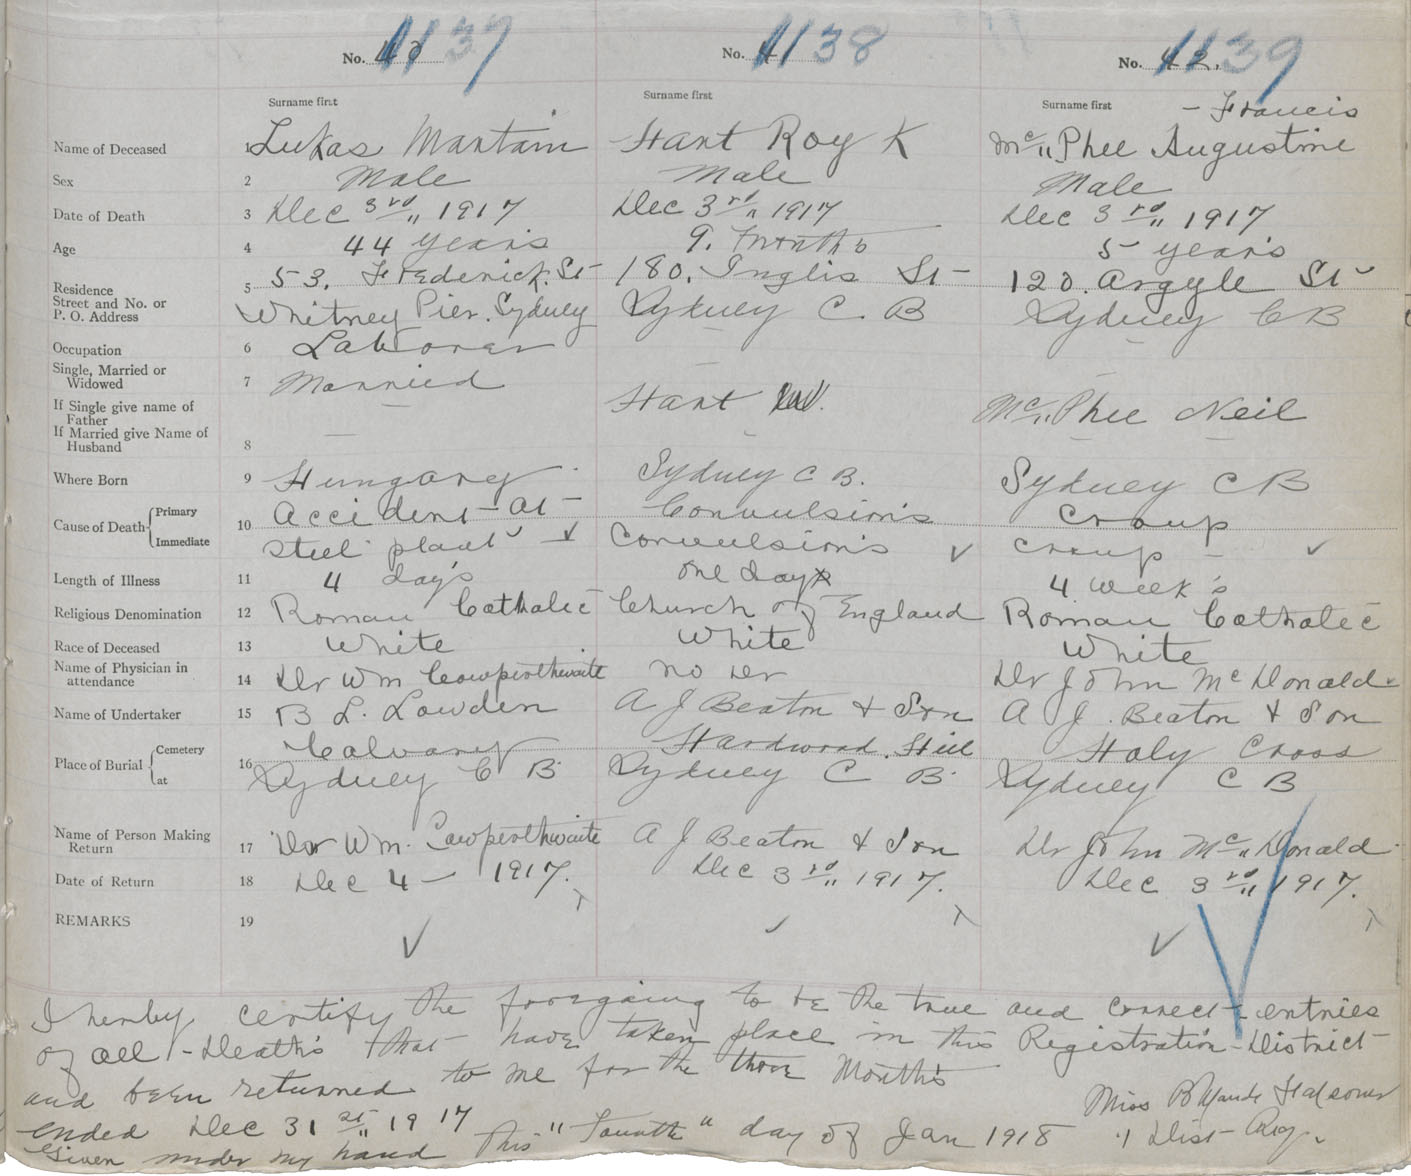 No. 40 1137 No. 41 1138 No. 42. 1139
Surname first Surname first Surname first - Francis
Name of Deceased 1 Lukas Martain Hart Roy K Mc" Phee Augustine
Sex 2 Male Male Male
Date of Death 3 Dec 3rd" 1917 Dec 3rd" 1917 Dec 3rd" 1917
Age 4 44 years 9. months 5 years
Residence 53. Frederick. St 180. Inglis St 120. Argyle St
Street and No. or 5
P. O. Address Whitney Pier. Sydney Sydney C. B Sydney C B
Occupation 6 Laborer — —
Single, Married or
Widowed 7 Married — —
If Single give name of
Father — Hart Mc" Phee Neil
If Married give Name of
Husband 8 — — — —
Where Born 9 Hungary Sydney C B. Sydney C B
Cause of Death Primary 10 Accident At Convulsions Croup
Immediate steel plant ✓ Convulsions ✓ Croup - ✓
Length of Illness 11 4 days one day 4 weeks
Religious Denomination 12 Roman Catholic Church of England Roman Catholic
Race of Deceased 13 White White White
Name of Physician in
attendance 14 Dr Wm Cowperthwaite no Dr Dr John Mc Donald
Name of Undertaker 15 B L. Lowden A J Beaton & Son A J. Beaton & Son
Place of Burial Cemetery 16 Calvary Hardwood. Hill Holy Cross
at Sydney C B. Sydney C B. Sydney C B
Name of Person Making
Return 17 Dr Wm. Cowperthwaite A J Beaton & Son Dr John Mc" Donald.
Date of Return 18 Dec 4 — 1917. Dec 3rd" 1917. Dec 3rd" 1917.
REMARKS 19 ✓ ✓ ✓
I hereby certify the foregoing to be the true and correct entries
of all Deaths that have taken place in this Registration District
and been returned to me for the three Months
ended Dec 31st" 1917 Miss B Maude
Given under my hand this "Fourth" day of Jan 1918 Dist Reg.